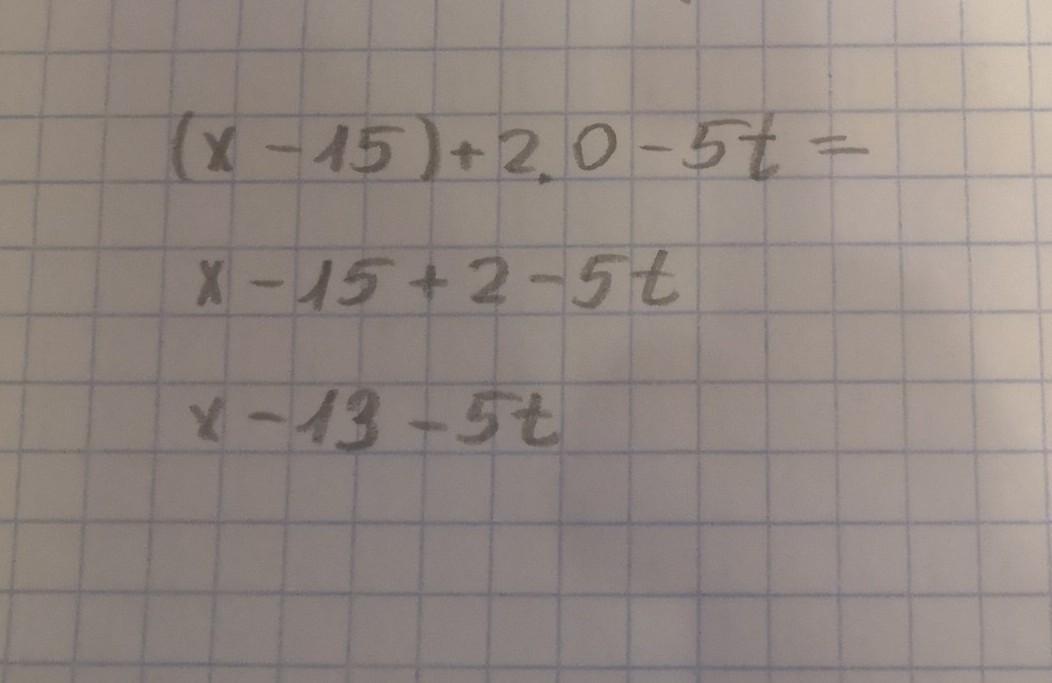 (x - 15) + 2.0 - 5t =
x - 15 + 2 - 5t
x - 13 - 5t